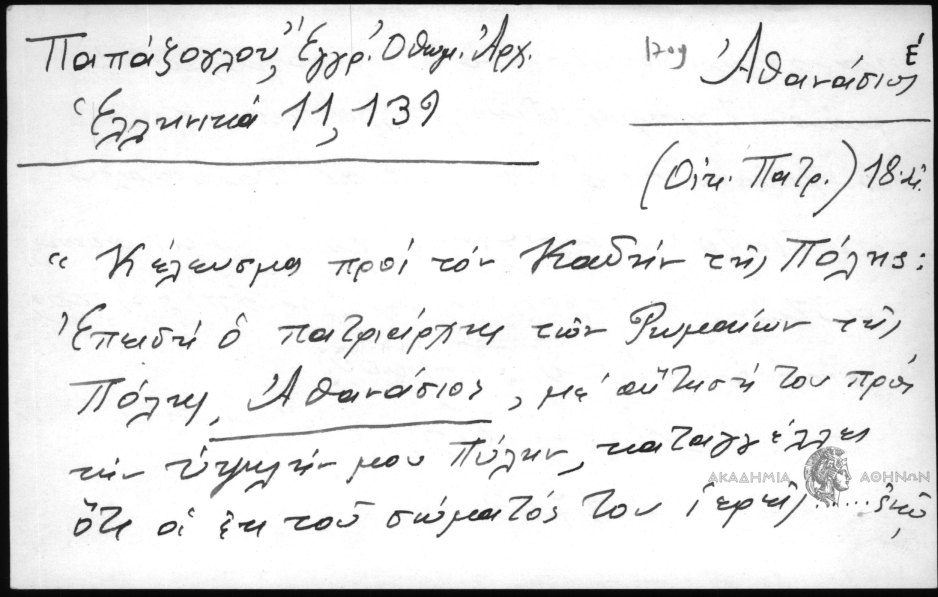 Παπάζογλου, Ἔγγρ. Ὀθωμ. Ἀρχ.
Ἑλληνικά 11, 139
1709 Ἀθανάσιος Έ
(Οἰκ. Πατρ.) 18.
" Κέλευσμα πρὸς τὸν Καδὴν τῆς Πόλης:
Ἐπειδὴ ὁ πατριάρχης τῶν Ρωμαίων τῆς
Πόλης, Ἀθανάσιος, μὲ αἴτησή του πρὸς
τὴν ὑψηλήν μου Πύλην, καταγγέλλει
ὅτι οἱ ἐκ τοῦ σώματός του ἱερεῖς ......
ΑΚΑΔΗΜΙΑ ΑΘΗΝΩΝ